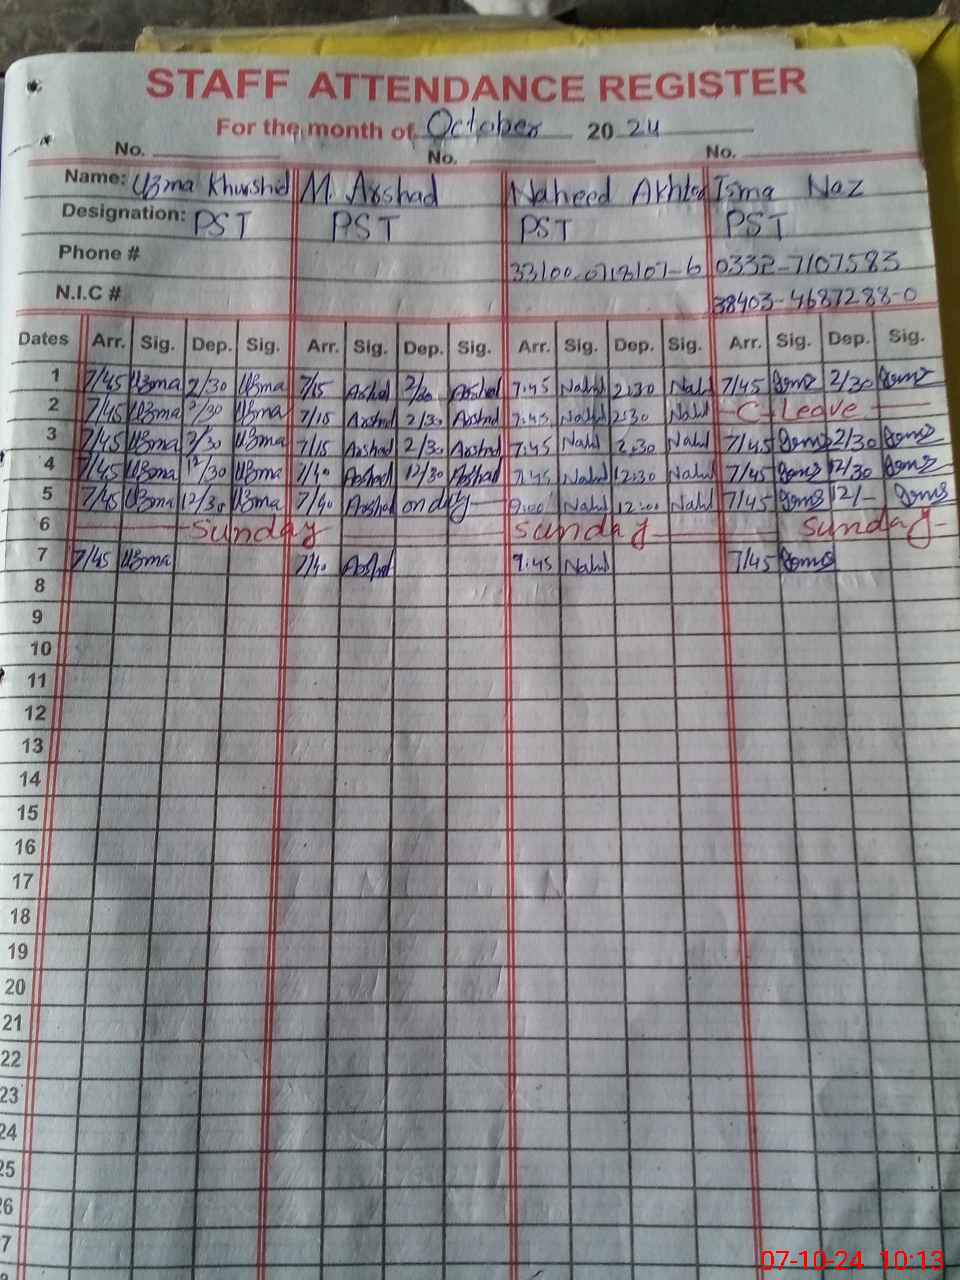 STAFF ATTENDANCE REGISTER
For the month of October 2024
No. No. No.
Name: Uzma Khurshid M. Arshad Naheed Akhtar Isma Naz
Designation: PST PST PST PST
Phone # 33100-0718107-6 0332-7107583
N.I.C # 38403-4687288-0
Dates Arr. Sig. Dep. Sig. Arr. Sig. Dep. Sig. Arr. Sig. Dep. Sig. Arr. Sig. Dep. Sig.
1 7/45 Uzma 2/30 Uzma 7/15 Arshad 2/30 Arshad 7:45 Nahd 2:30 Nahd 7/45 Isma 2/30 Isma
2 7/45 Uzma 2/30 Uzma 7/15 Arshad 2/30 Arshad 7:45 Nahd 2:30 Nahd C-Leave
3 7/45 Uzma 2/30 Uzma 7/15 Arshad 2/30 Arshad 7:45 Nahd 2:30 Nahd 7/45 Isma 2/30 Isma
4 7/45 Uzma 12/30 Uzma 7/40 Arshad 12/30 Arshad 7:45 Nahd 12:30 Nahd 7/45 Isma 12/30 Isma
5 7/45 Uzma 12/30 Uzma 7/40 Arshad on duty Nahd 12:00 Nahd 7/45 Isma 12/- Isma
6 Sunday Sunday Sunday
7 7/45 Uzma 7/40 Arshad 7:45 Nahd 7/45 Isma
8
9
10
11
12
13
14
15
16
17
18
19
20
21
22
23
24
25
26
7
07-10-24 10:13